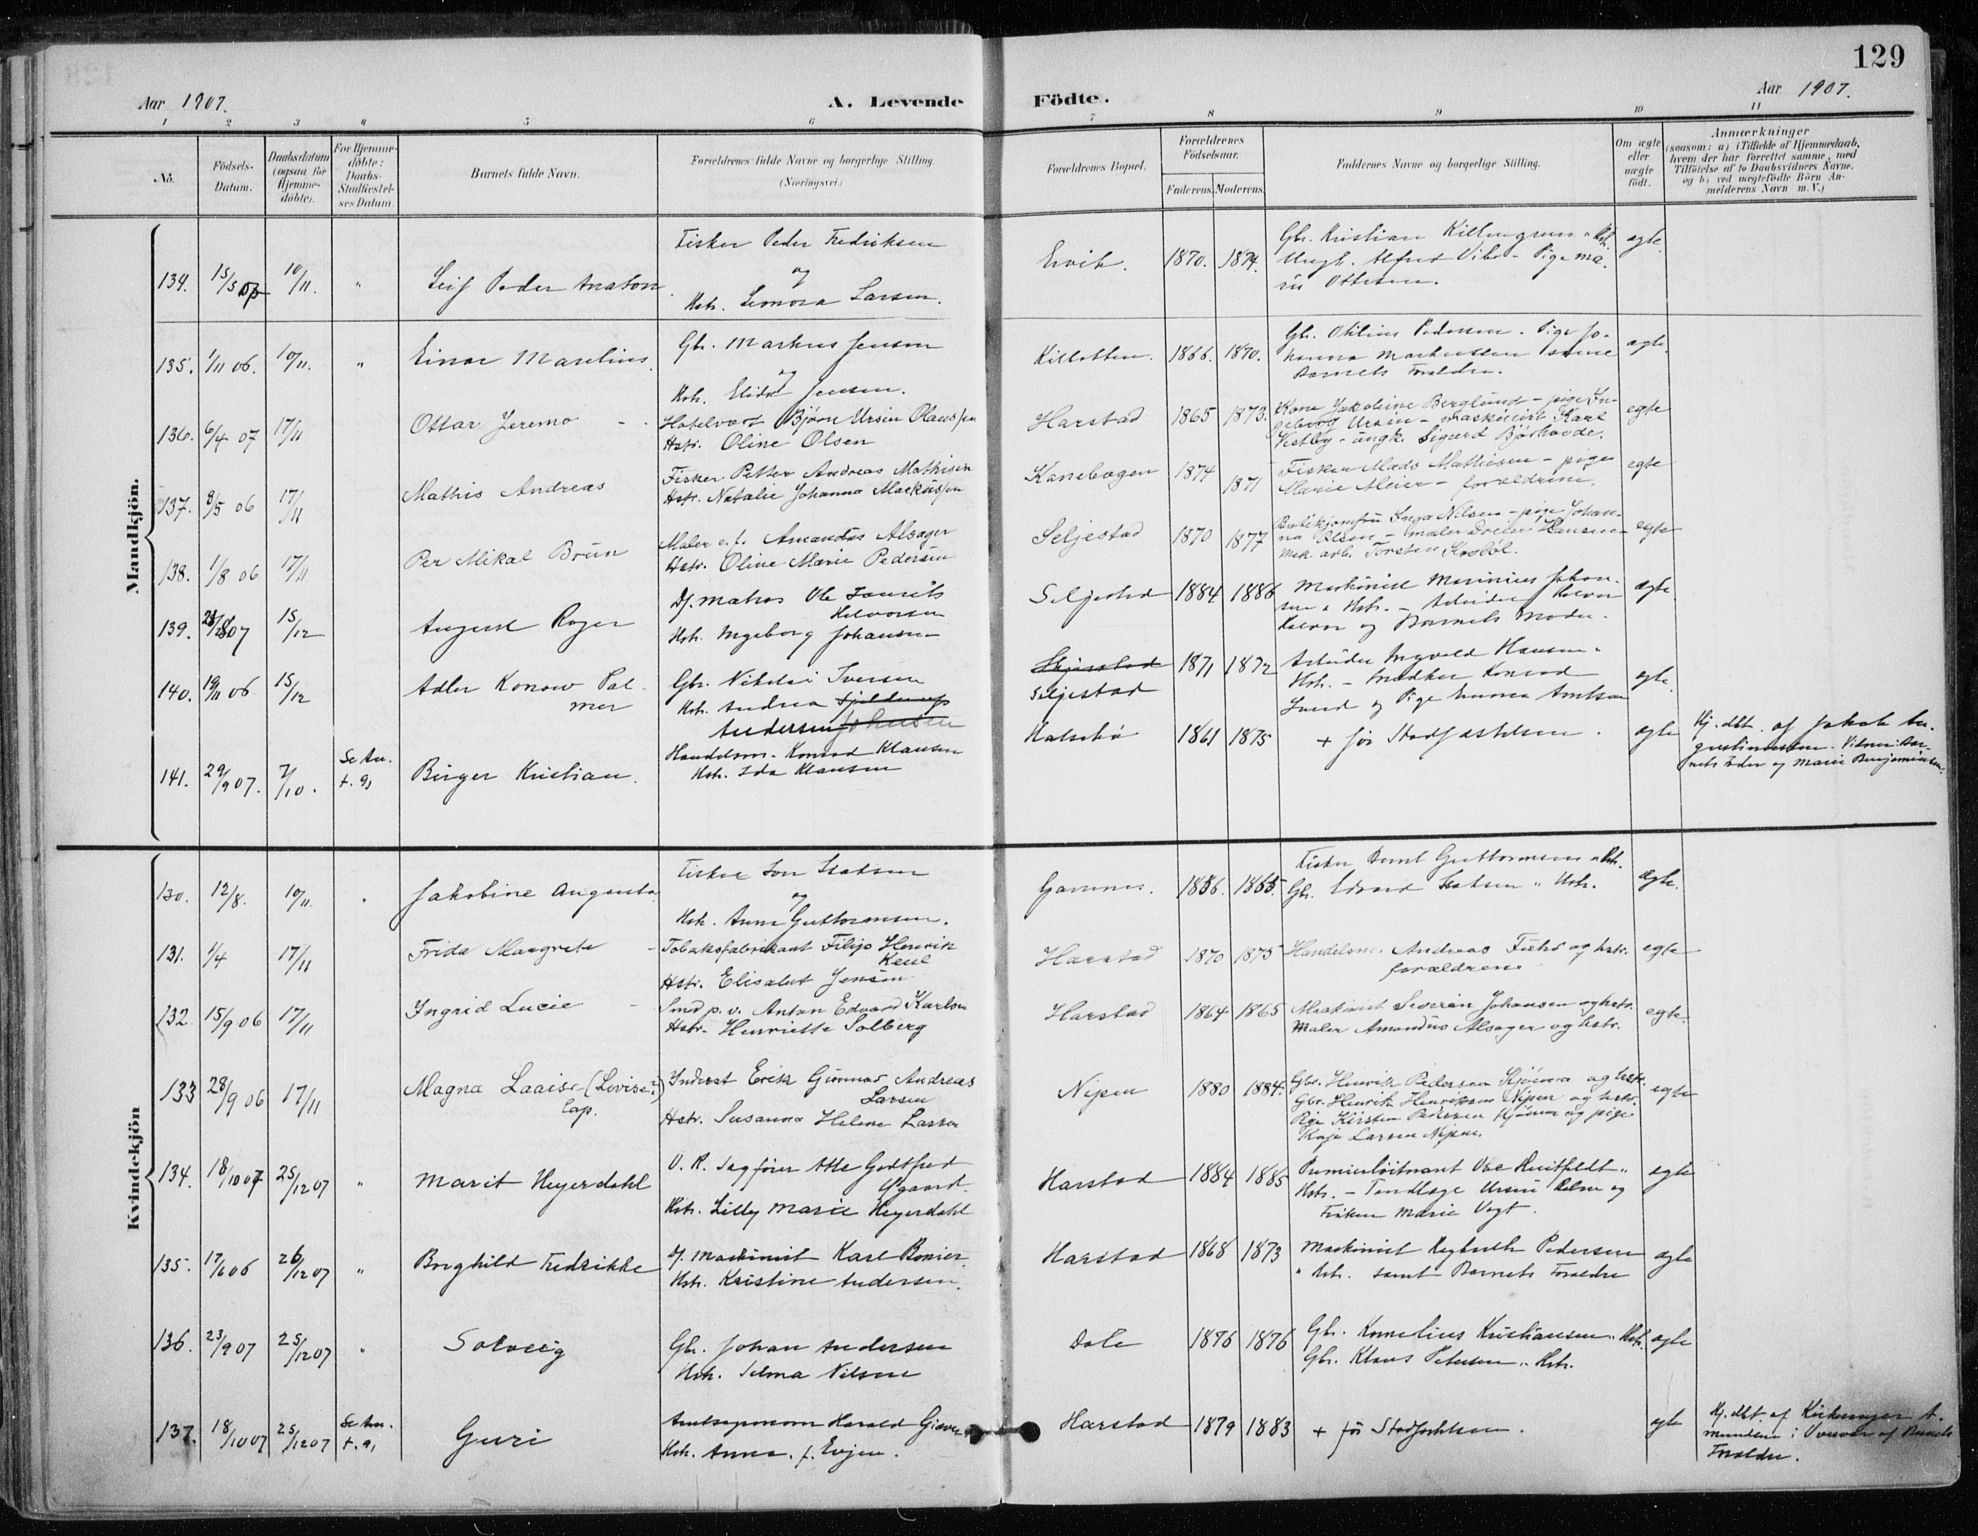 129
Aar 1907.
A. Levende Födte.
Aar 1907.
1 2 3 4 5 6 7 8 9 10 11
No.
Födsels-Datum.
Daabsdatum (ogsaa for Hjemmedöbte).
For Hjemmedöbte: Daabs-Stadfæstelses Datum.
Barnets fulde Navn.
Forældrenes fulde Navne og borgerlige Stilling. (Næringsvei.)
Forældrenes Bopæl.
Forældrenes Födselsaar.
Faderens. Moderens.
Faddernes Navne og borgerlige Stilling.
Om ægte eller uægte født.
Anmærkninger
(saasom: a) i Tilfælde af Hjemmedaab,
hvem der har forrettet samme, med
Tilföielse af to Daabsvidners Navne.
og b) ved uægtefödte Börn An-
melderens Navn m. V.)
Mandkjön.
134. 15/5 07 10/11. " Leif Peder Anaton
Fisker Peder Fredriksen
og
Hstr. Leonora Larsen.
Ervik. 1870. 1874.
Gbr. Kristian
Ungk. Alfred Vibe - Pige Ma-
rie Ottesen.
ægte.
135. 1/11 06. 10/11. " Einar Marelius.
Gbr. Markus Jensen
og
Hstr. Elida Jensen.
Kilbotten. 1866. 1870.
Gbr. Othilius Pedersen. Pige Jo-
hanna Markussen samt
Barnets Forældre.
ægte.
136. 6/4 07 17/11 Ottar Jeremo -
Hotelvært Bjørn Ursin Olaussen
Hstr. Oline Olsen
Harstad 1865 1873.
Kone Jakobine Berglund - pige In-
geborg Ursin - maskinist Karl
Vestby - ungk. Sigurd Bjørhovde.
egte
137. 8/5 06 17/11 Mathis Andreas
Fisker Petter Andreas Mathisen
Hstr. Natalie Johanna Markussen
Kanebogen 1874 1871
Fisker Mads Mathisen - pige
Marie Meier - forældrene.
egte
138. 1/8 06 17/11 Per Mikal Brun
Maler e.l. Amandus Alsager
Hstr. Oline Marie Pedersen
Seljestad 1870 1877
Butikjomfru Inga Nilsen - pige Johan-
na Olsen - maler Hansen -
mek. arb. Torsten
egte
139. 15/12 August Roger
Df. Matros Ole Laurits
Halvorsen
Hstr. Ingeborg Johansen
Seljestad 1884 1886
Maskinist Marinius Johan-
sen & Hstr. - Arbeider
og Barnets Moder.
ægte.
140. 19/11 06 15/12 Adler Konow Pal-
mer
Gbr. Nikolai Iversen
Hstr. Andrea
Andersen Johnsen
Seljestad
1871 1872
Arbeider Ingvald Hansen &
Hstr. - Snedker Konrad
Lund og Pige Emma Arntsen
ægte.
141. 29/9 07. 7/10. Se An. t. g, Birger Kristian.
Handelsm. Konrad Klausen
Hstr. Ida Klausen
Halsebø 1861 1875
+ før Stadfæstelsen.
ægte
Hj. dbt. af Jakob Au-
gustinussen. Vidner: Bar-
nets Fader og Marie Benjaminsen.
Kvindekjön
130. 12/8. 10/11. " Jakobine Augusta.
Fisker Ion Isaksen
og
Hstr. Anna Guttormsen.
Gammes. 1856. 1865.
Fisker Arnt Guttormsen & Hstr.
Gbr. Edvard Isaksen & Hstr.
ægte.
131. 1/4 17/11 Frida Margrete -
Tobaksfabrikant Filip Henrik
Keul
Hstr. Elisabet Jensen
Harstad 1870 1875
Handelsm. Andreas og hstr.
forældrene
egte
132 15/9 06 17/11 Ingrid Lucie -
Smed p.v. Anton Edvard Karlsen
Hstr. Henriette Solberg
Harstad 1864 1865
Maskinist Severin Johansen og hstr.
Maler Amandus Alsager og hstr.
egte.
133 28/9 06 17/11 Magna Laaise (Lovise?)
lap.
Inderst Erik Gunnar Andreas
Larsen
Hstr. Susanna Helene Larsen
Nipen 1880 1884.
Gbr. Henrik Pedersen Kjønna og hstr.
Gbr. Henrik Henriksen Nipen og hstr.
Pige Kirsten Pedersen Kjønna og pige
Kaja Larsen Nipen.
egte
134. 18/10 07 25/12 07 " Marit Heyerdahl
O. R. Sagfører Atle Godtfred
Ygaard.
Hstr. Lilly Marie Heyerdahl
Harstad 1884 1885
Premierløitnant Ove Huitfeldt &
Hstr. - Tandlæge og
Frøken Marie Vogt.
ægte
135. 17/6 06 26/12 07 " Borghild Fredrikke
Df. Maskinist Karl
Hstr. Kristine Andersen.
Harstad 1868 1873
Maskinist Pedersen
& Hstr. samt Barnets Forældre
ægte
136. 23/9 07 25/12 07 " Solveig
Gbr. Johan Andersen
Hstr. Selma Nilsen
Dale 1876 1876
Gbr. Kornelius Kristiansen & Hstr.
Gbr. Klaus Petersen & Hstr.
ægte
137. 18/10 07 25/12 07 Se An. t. g, Guri
Amtsingeniør Harald
Hstr. Anna f. Evjen.
Harstad 1879 1883
+ før Stadfæstelsen.
ægte
Hj. dbt. af Kirkesanger A-
mundsen i Overvær af Barnets
Forældre.